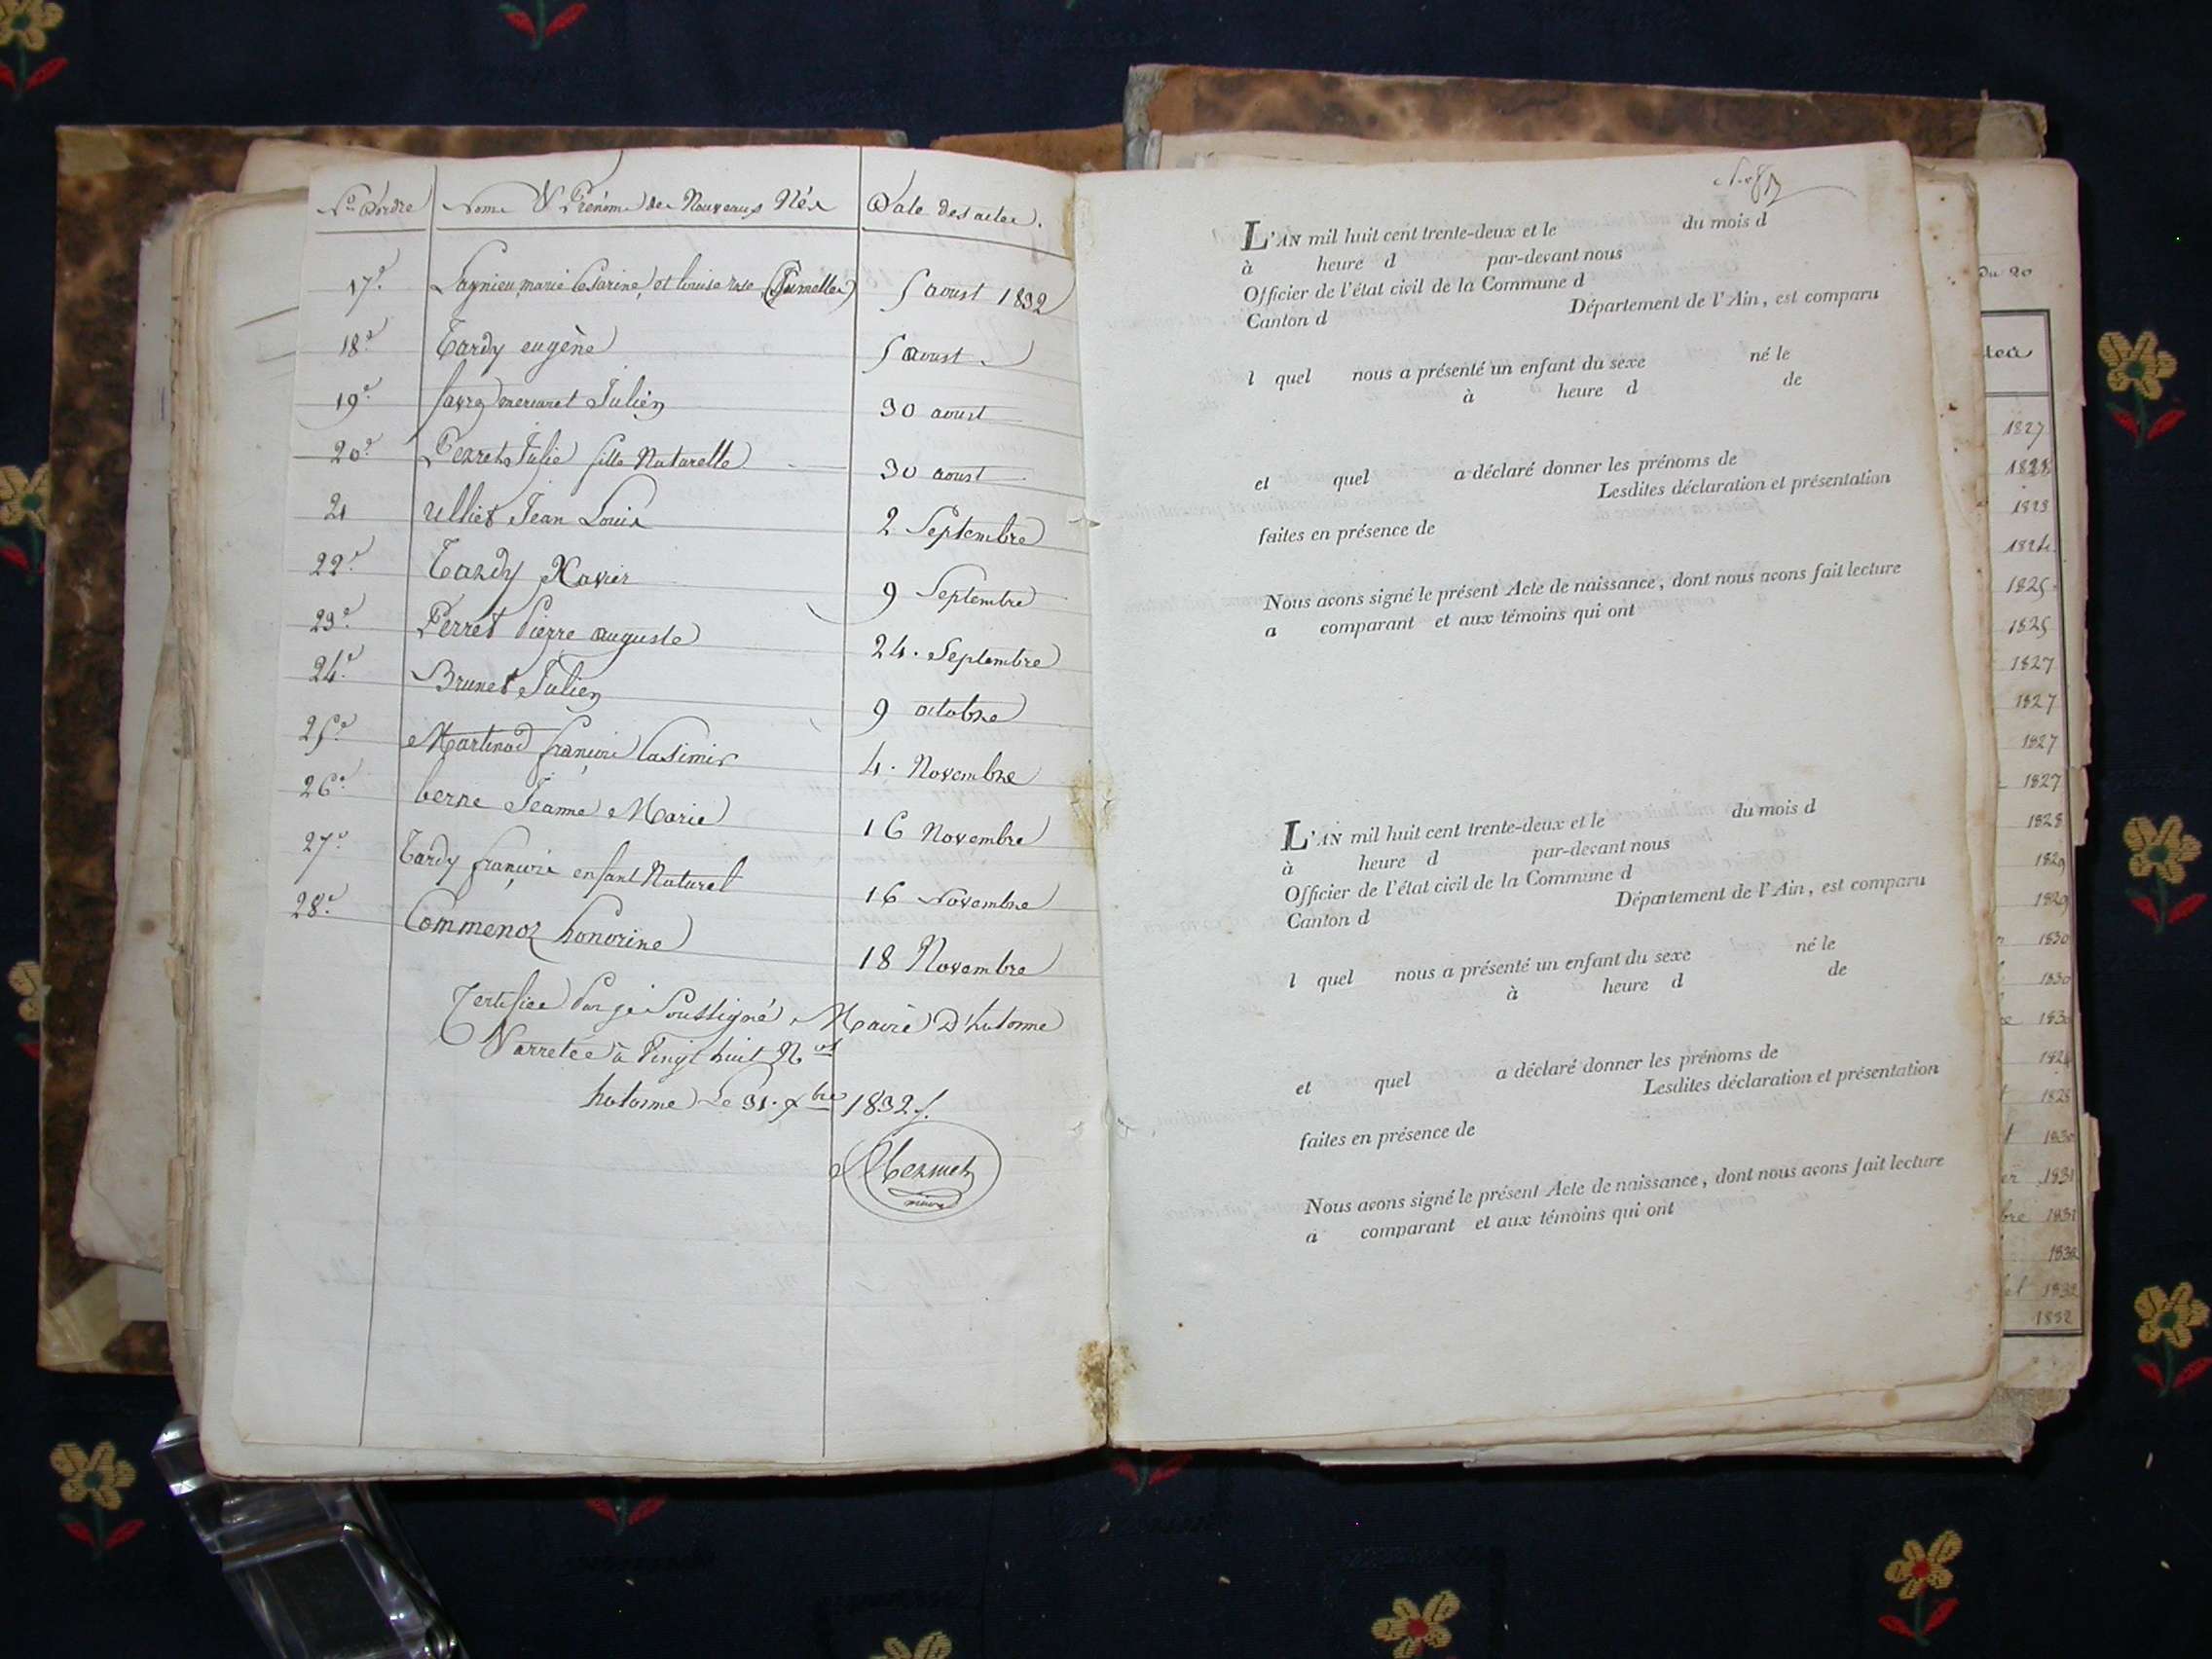 No D'ordre Noms & Prénoms des Nouveaux Nés Date des actes.
17.e Laynieu marie Cesarine, et louise rose (Jumelles) 5 aoust 1832
18.e Tardy eugène 5 aoust
19.e favre mermet Julien 30 aoust
20.e Perret Julie fille Naturelle 30 aoust
21 Ulliet Jean Louis 2 Septembre
22.e Tardy Xavier 9 Septembre
23.e Perret Pierre auguste 24. Septembre
24.e Brunet Julien 9 octobre
25.e Martinod françois Casimir 4. Novembre
26.e berne Jeanne Marie 16 Novembre
27.e Tardy françois enfant Naturel 16 Novembre
28.e Commenoz honorine 18 Novembre
Certifiée Par je Soussigné Maire D'hotonne
& arretée à Vingt huit N.os
hotonne Le 31. xbre 1832.
Mermet
maire
L'AN mil huit cent trente-deux et le du mois d
à heure d par-devant nous
Officier de l'état civil de la Commune d
Canton d Département de l'Ain, est comparu
l quel nous a présenté un enfant du sexe né le
à heure d de
et quel a déclaré donner les prénoms de
Lesdites déclaration et présentation
faites en présence de
Nous avons signé le présent Acte de naissance, dont nous avons fait lecture
a comparant et aux témoins qui ont
L'AN mil huit cent trente-deux et le du mois d
à heure d par-devant nous
Officier de l'état civil de la Commune d
Canton d Département de l'Ain, est comparu
l quel nous a présenté un enfant du sexe né le
à heure d de
et quel a déclaré donner les prénoms de
Lesdites déclaration et présentation
faites en présence de
Nous avons signé le présent Acte de naissance, dont nous avons fait lecture
a comparant et aux témoins qui ont
Du 20
1827
1828
1823
1824
1825
1825
1827
1827
1827
1827
1828
1829
1829
1830
1830
1830
1828
1830
1831
bre 1831
1832
1832
1832